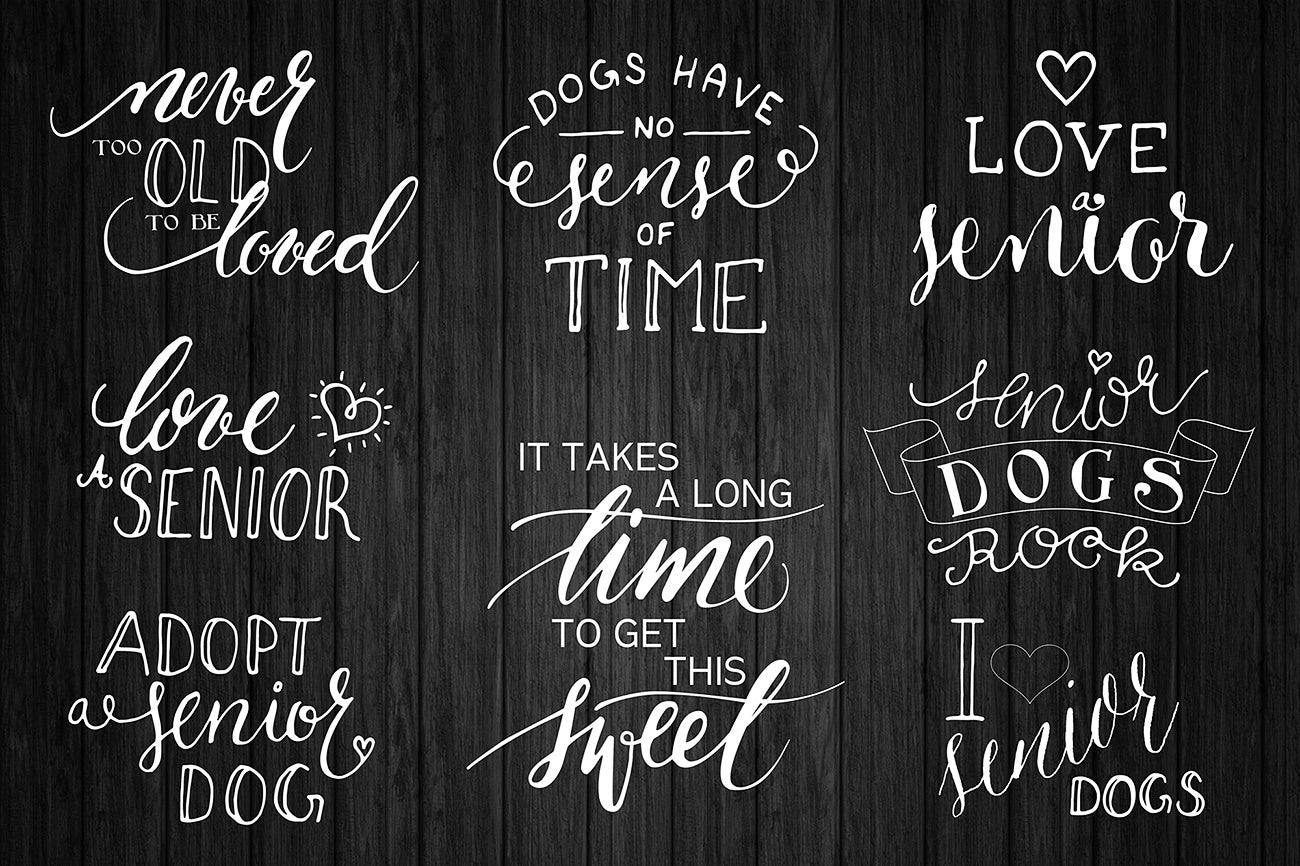 never
TOO OLD
TO BE
loved
DOGS HAVE
NO
sense
OF
TIME
LOVE
a
senior
love
A SENIOR
IT TAKES
A LONG
time
TO GET
THIS
sweet
senior
DOGS
ROCK
ADOPT
a senior
DOG
I
senior
DOGS